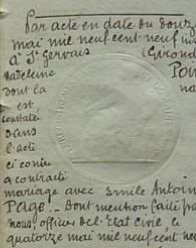 Par acte en date du douz
mai mil neuf cent neuf
à St Gervais (Girond
Madeleine Pou
dont la
est
constatée
dans
l'acte
ci contre
a contracté
mariage avec Emile Antoin
Page. Dont mention faite
nous, officier de l'Etat Civil, le
quatorze mai mil neuf cent